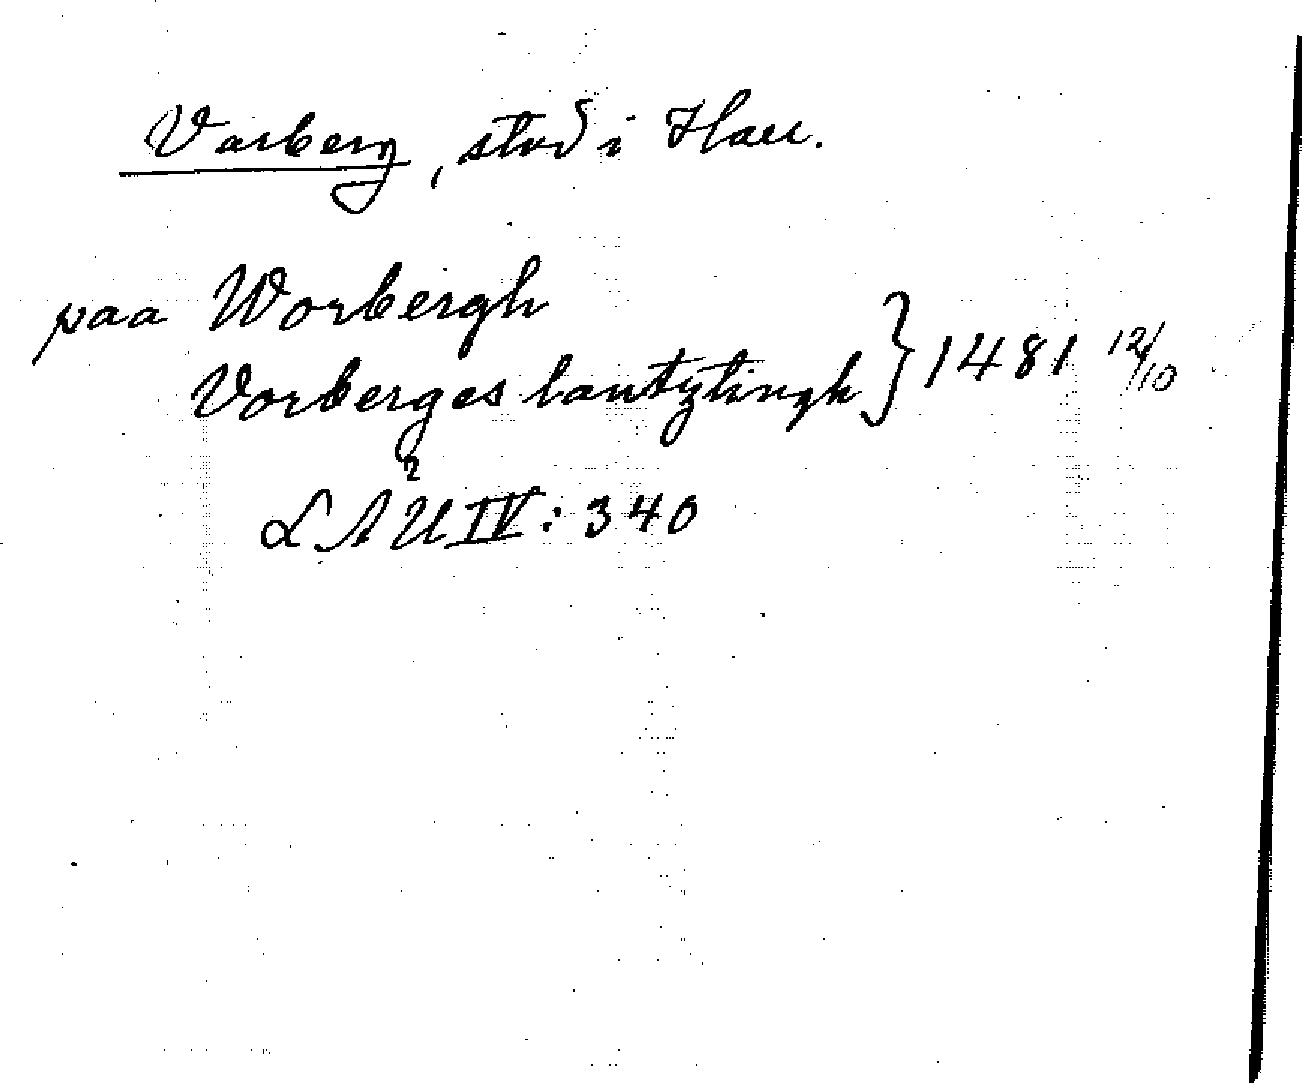 Varberg, stad i Hall.
paa Worbergh
Vorberges lantztingh } 1481 12/10
LÅU IV: 340